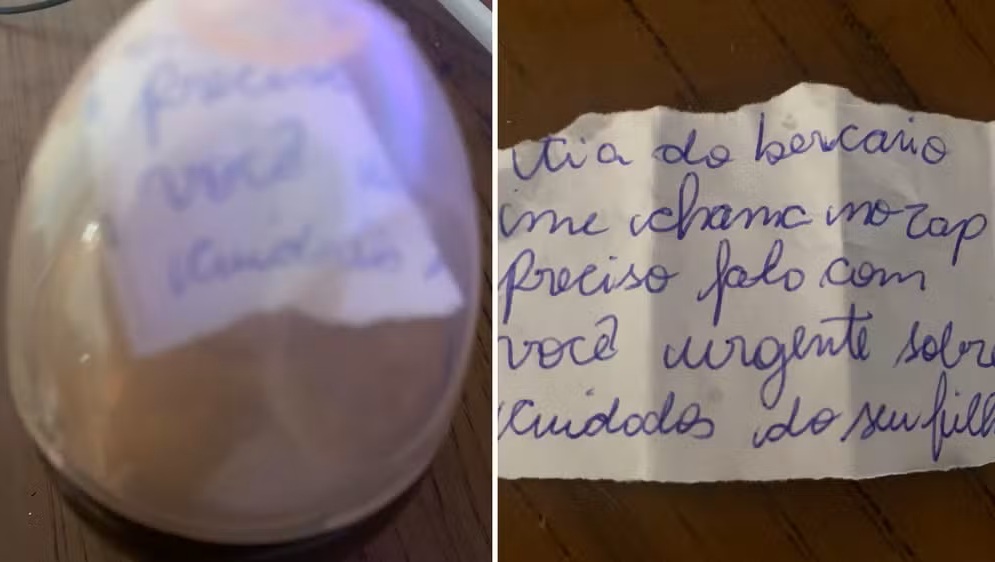 precis
você
cuidados
tia do bercario
me chama no zap
preciso falo com
você urgente sobre
cuidados do seu filh